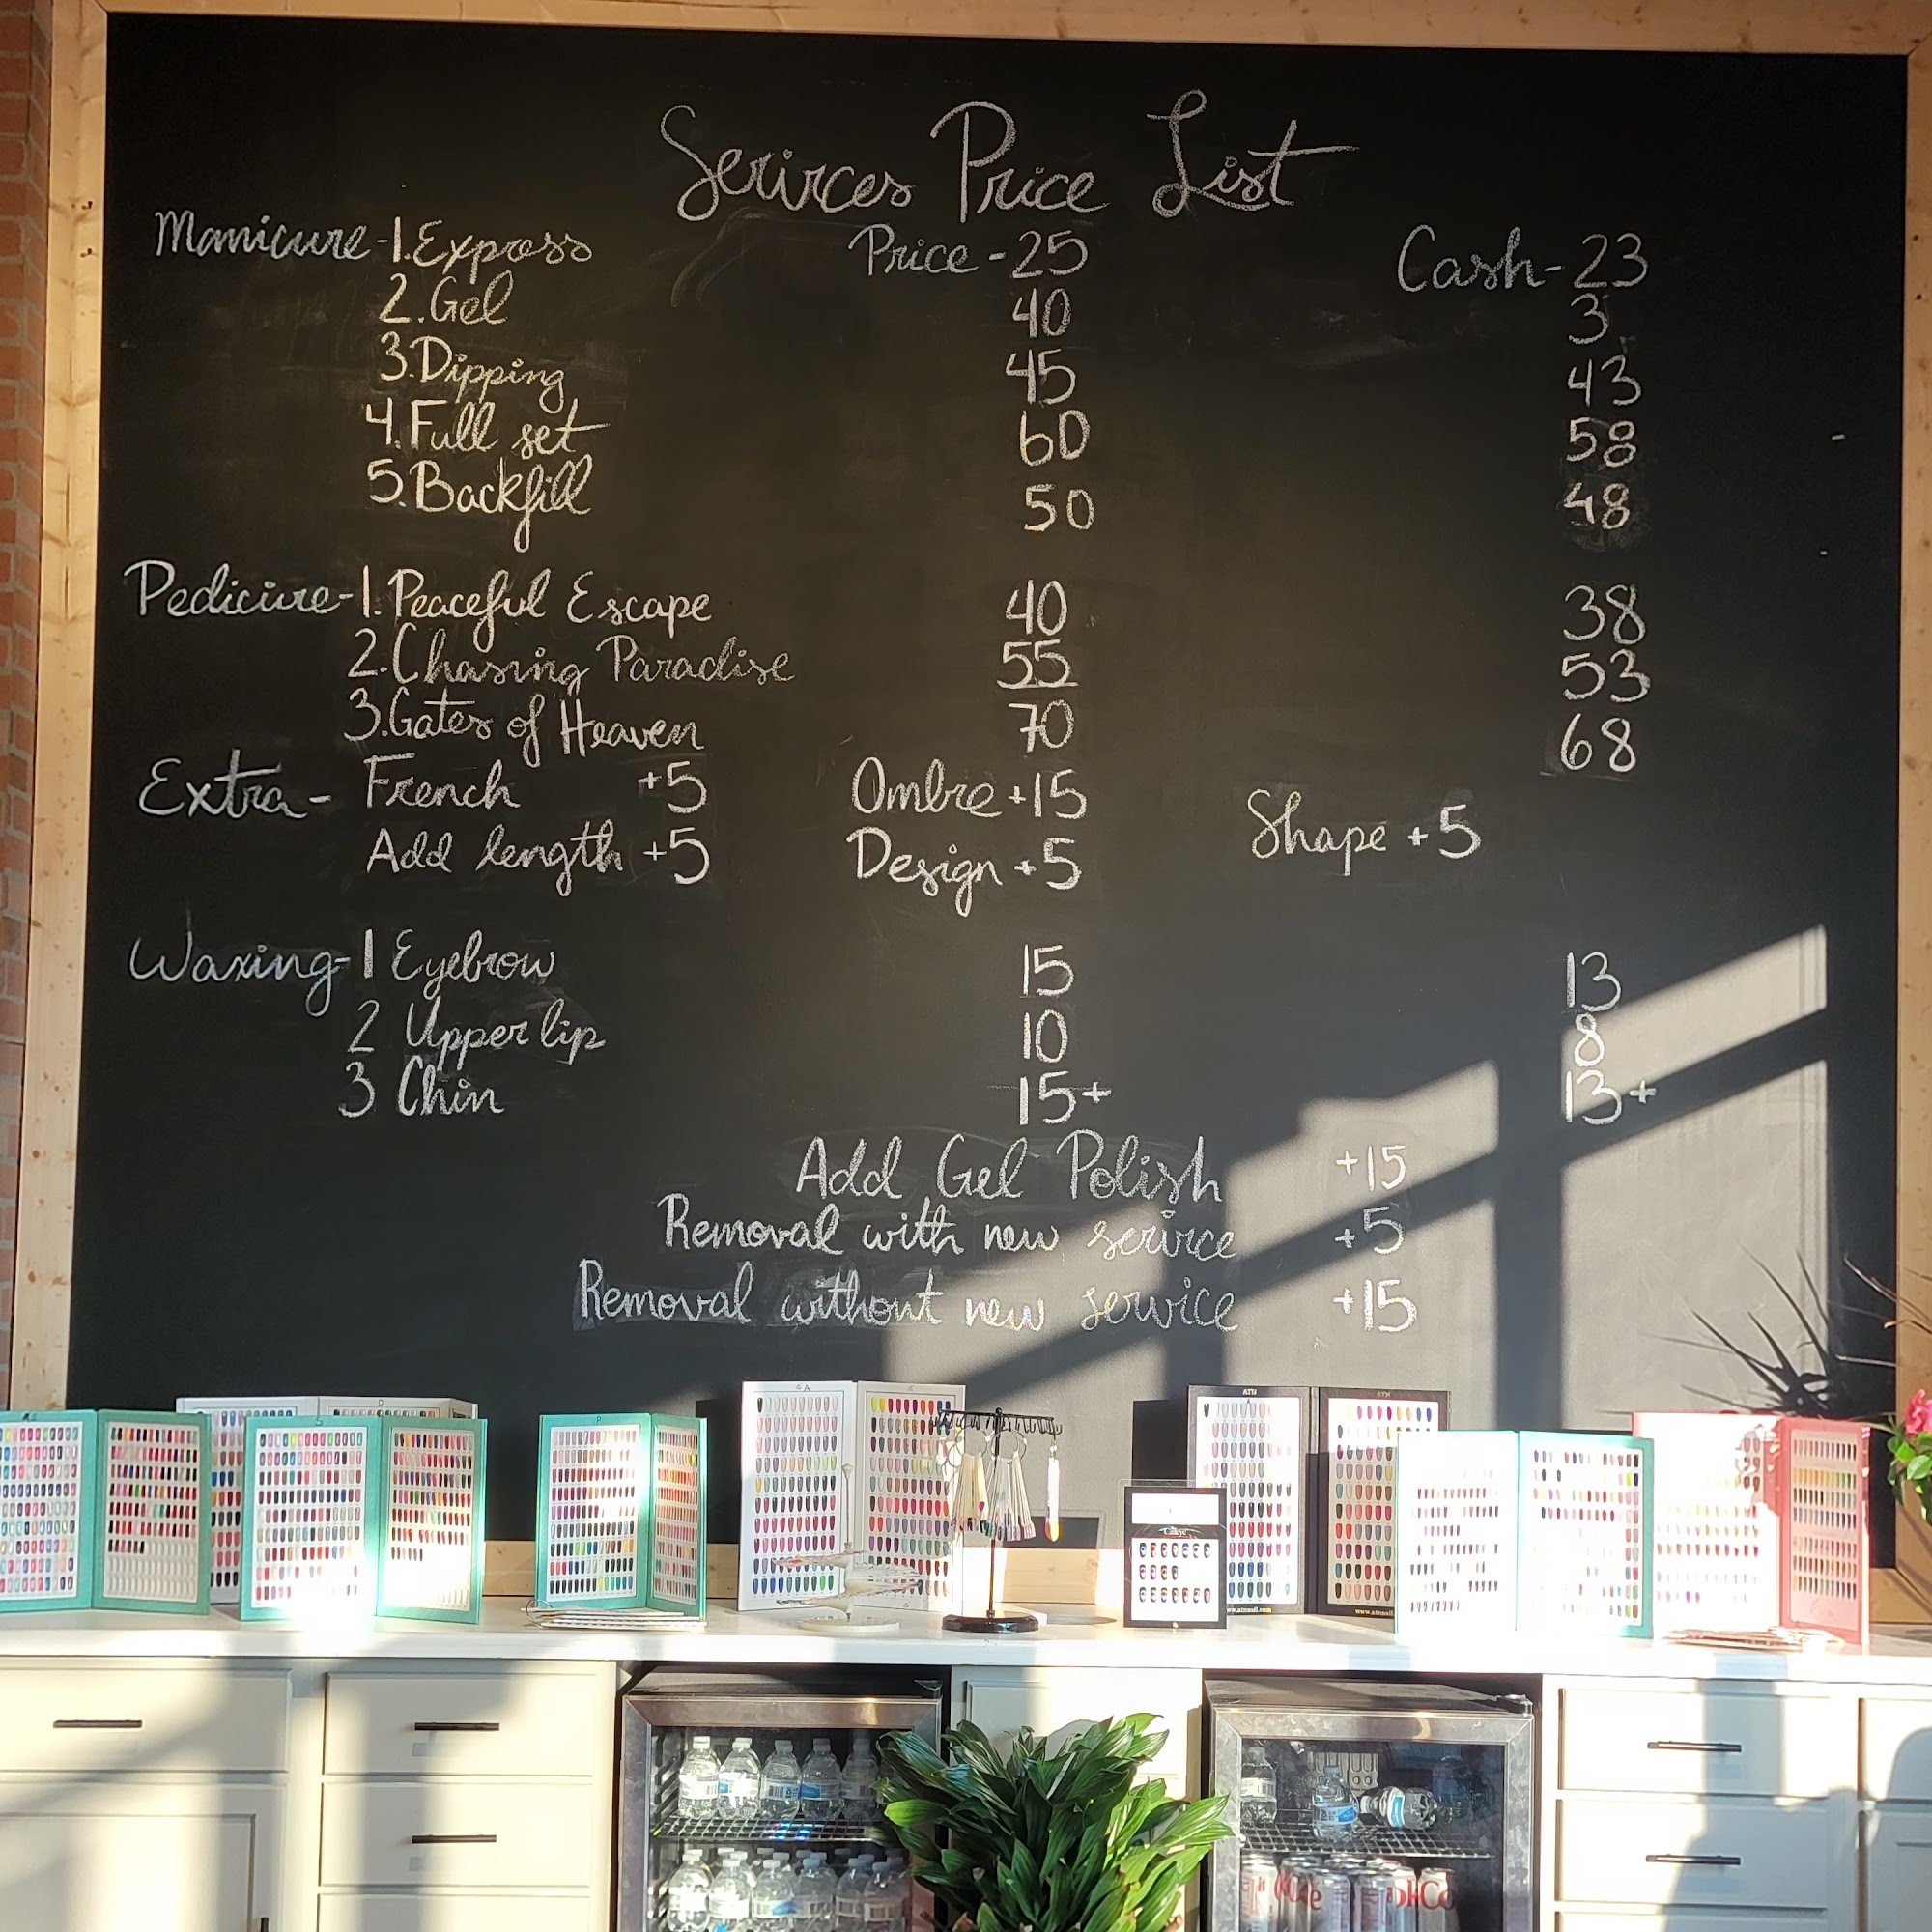 Serivces Price List
Manicure - 1. Express Price - 25 Cash - 23
2. Gel 40 3
3. Dipping 45 43
4. Full set 60 58
5. Backfill 50 48
Pedicure - 1. Peaceful Escape 40 38
2. Chasing Paradise 55 53
3. Gates of Heaven 70 68
Extra - French +5 Ombre +15 Shape +5
Add length +5 Design +5
Waxing - 1 Eyebrow 15 13
2 Upper lip 10 8
3 Chin 15+ 13+
Add Gel Polish +15
Removal with new serivce +5
Removal without new service +15